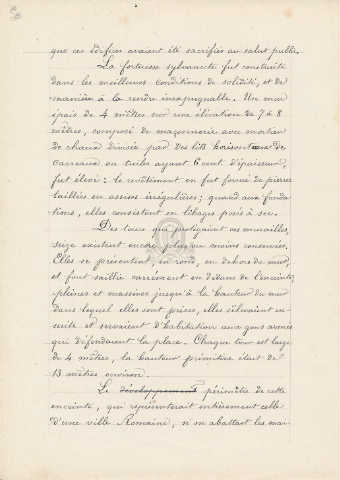 que ces édifices avaient été sacrifiés au salut public.
La forteresse sylvanecte fut construite
dans les meilleures conditions de solidité, et de
manière à la rendre inexpugnable. Un mur
épais de 4 mètres sur une élévation de 7 à 8
mètres, composé de maçonnerie avec mortier
de chaux divisée par des lits horizontaux de
carreaux ou tuiles ayant 6 cent. d'épaisseur,
fut élevé : le revêtement en fut formé de pierres
taillées en assises irrégulières ; quand aux fonda-
tions, elles consistent en libages posés à sec.
Des tours qui protégaient ces murailles,
seize existent encore plus ou moins conservées.
Elles se présentent en rond, en dehors du mur,
et font saillie carrément en dedans de l'enceinte,
pleines et massives jusqu'à la hauteur du mur
dans lequel elles sont prises, elles s'élevaient en-
suite et servaient d'habitation aux gens armés
qui défendaient la place. Chaque tour est large
de 4 mètres, la hauteur primitive était de
13 mètres environ.
Le développement périmètre de cette
enceinte, qui représenterait entièrement celle
d'une ville Romaine, si on abattait les mai-